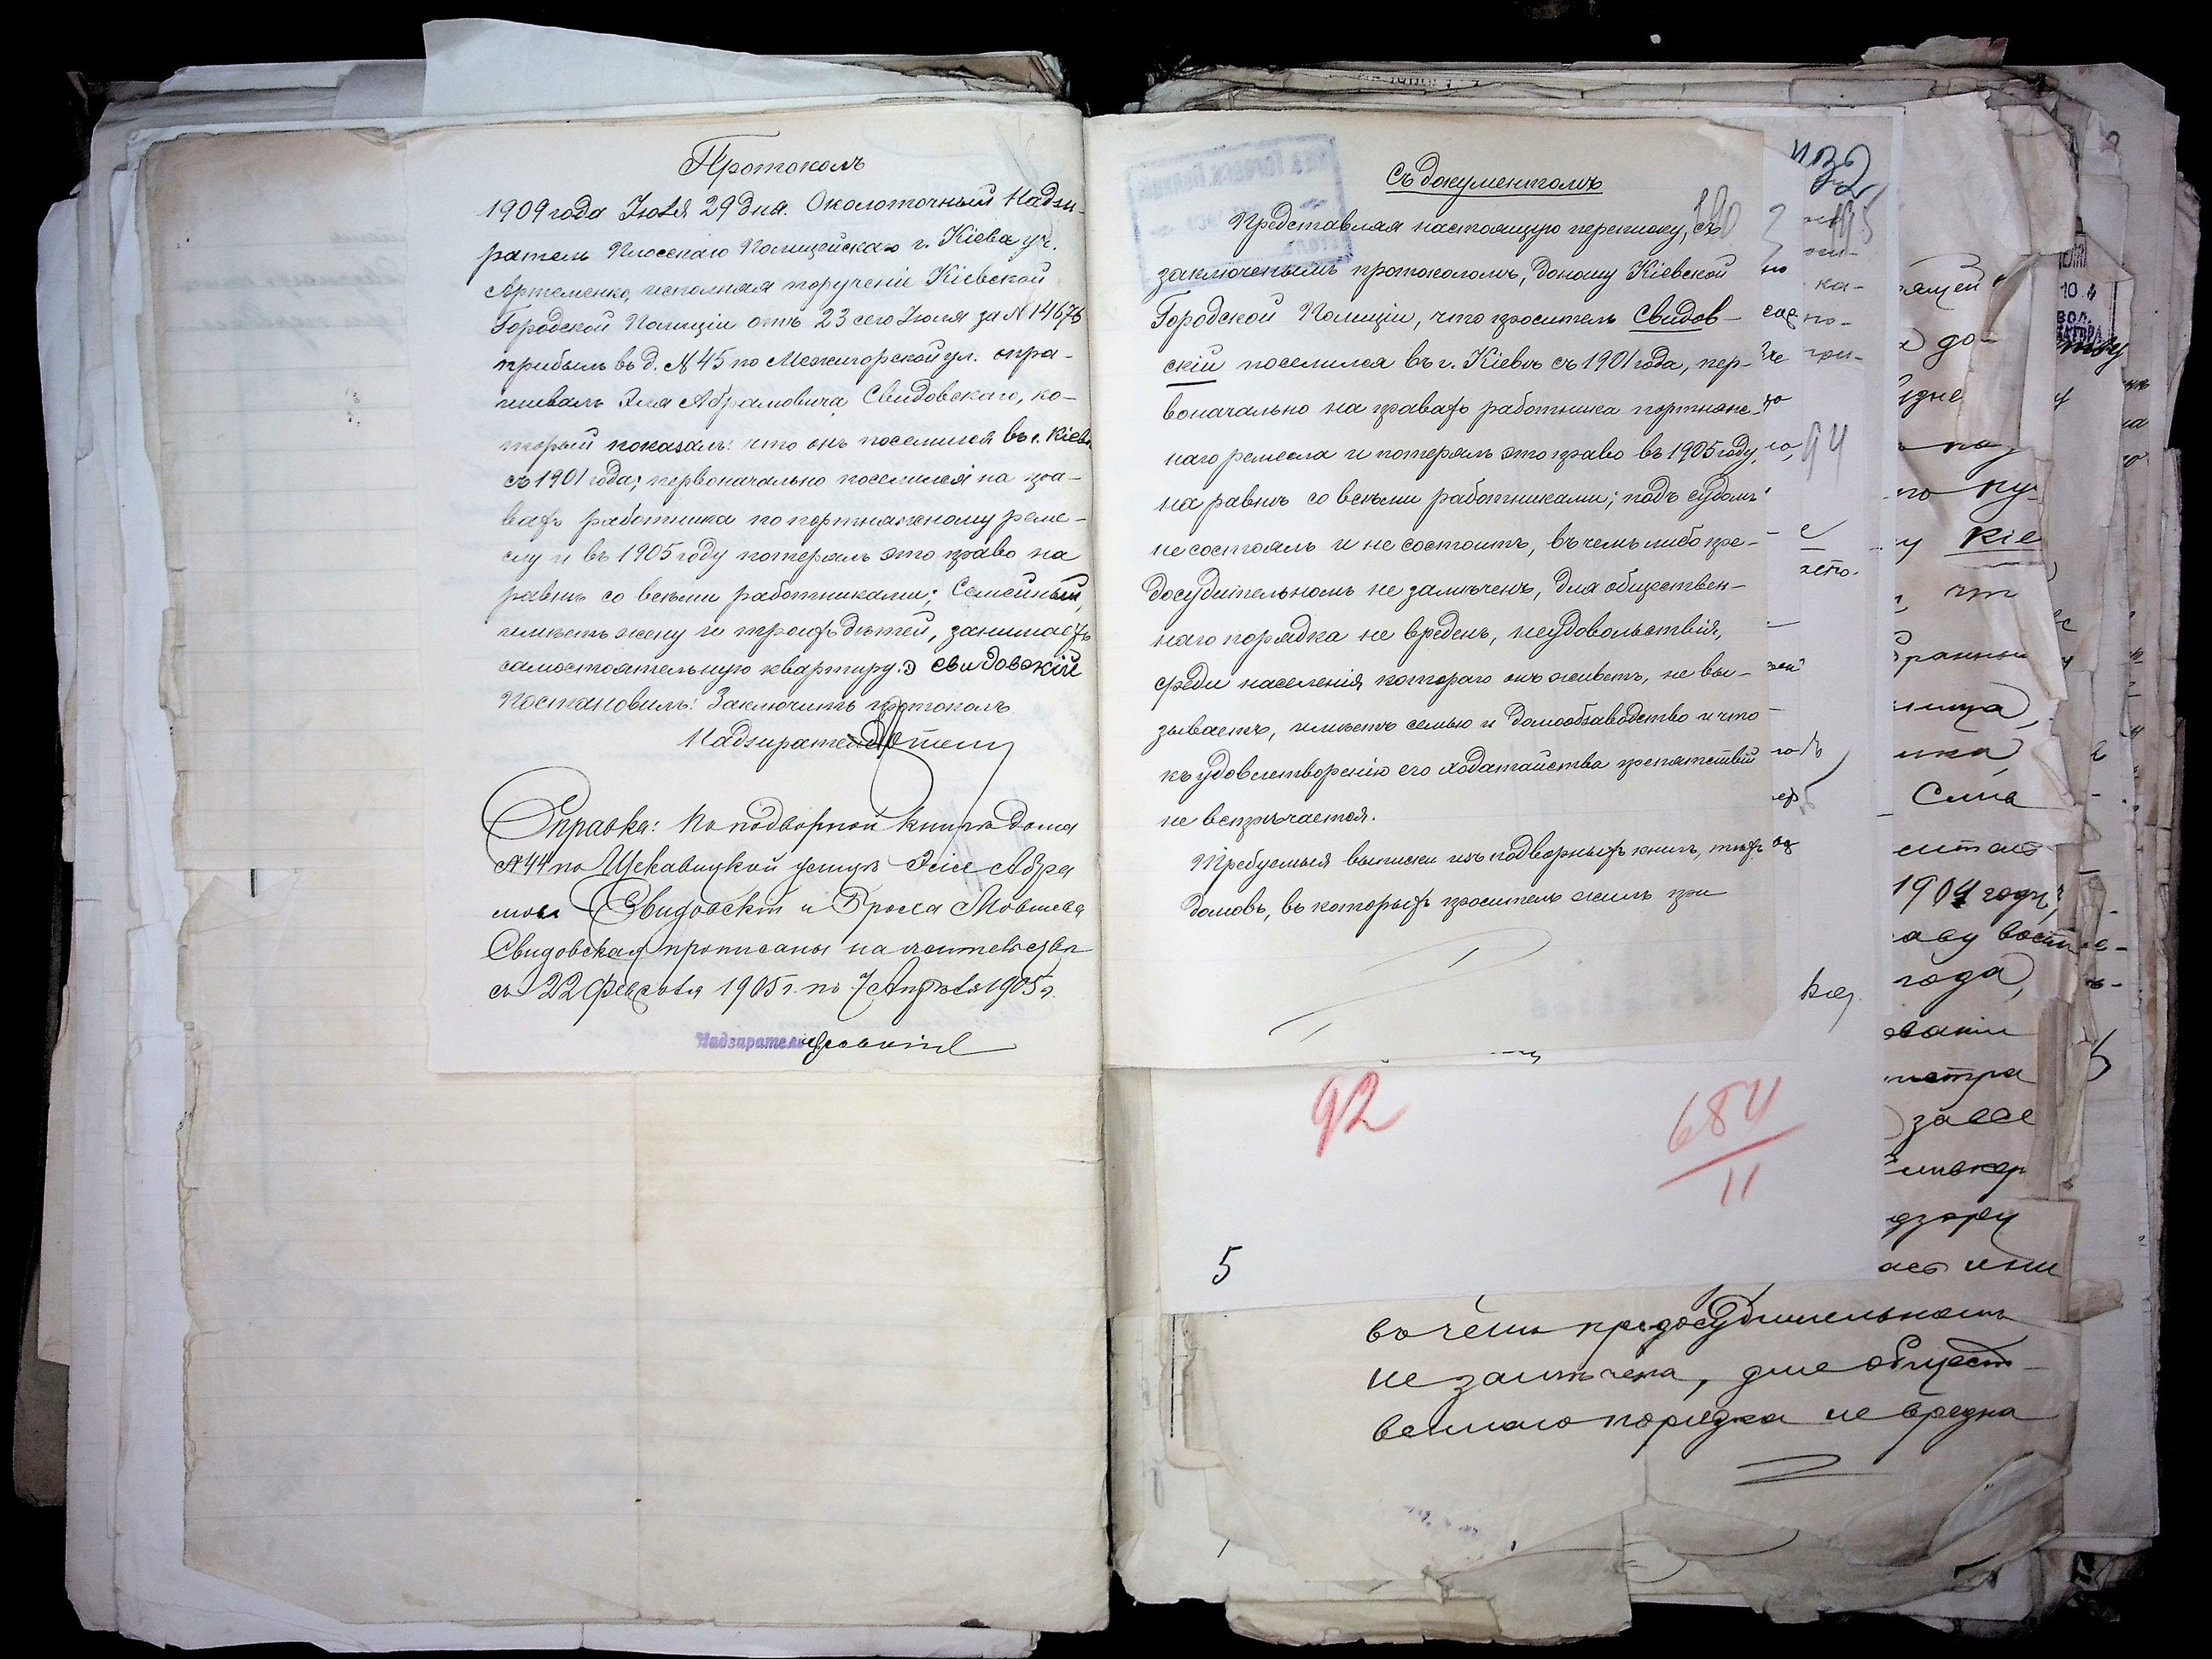 Протоколъ
1909 года Іюля 29 дня. Околоточный Надзи-
ратель Плоскаго Полицейскаго г. Кіева уч.
Артеменко, исполняя порученіе Кіевской
Городской Полиціи отъ 23 сего Іюля за №14676
прибылъ въ д. №45 по Межигорской ул. опра-
шивалъ Эля Абрамовича Свидовскаго, ко-
торый показалъ: что онъ поселился въ г. Кіевѣ
съ 1901 года; первоначально поселился на пра-
вахъ работника по портняжному реме-
слу и въ 1905 году потерялъ это право на
равнѣ со всѣми работниками; Семейный,
имѣетъ жену и троихъ дѣтей, занимаетъ
самостоятельную квартиру. Э Свидовскій
Постановилъ: Заключить протоколъ
Надзиратель
Справка: По подворной книгѣ дома
№44 по Щекавицкой улицѣ Эля Абра
мовъ Свидовскій и Фрома Мовшева
Свидовская прописаны на жительство
съ 22 Февраля 1905 г. по 7 Апрѣля 1905 г.
Надзиратель
Съ документомъ
190
Представляя настоящую переписку, съ
заключенымъ протоколомъ, доношу Кіевской
Городской Полиціи, что проситель Свидов-
скій поселился въ г. Кіевѣ съ 1901 года, пер-
воначально на правахъ работника портняж-
наго ремесла и потерялъ это право въ 1905 году,
на равнѣ со всѣми работниками; подъ судомъ
не состоялъ и не состоитъ, въ чемъ либо пре-
досудительномъ не замѣченъ, для обществен-
наго порядка не вреденъ, неудовольствія,
среди населенія котораго онъ живетъ, не вы-
зываетъ, имѣетъ семью и домообзаводство и что
къ удовлетворенію его ходатайства препятствій
не встрѣчается.
Требуемыя выписки изъ подворныхъ книгъ, тѣхъ
домовъ, въ которыхъ проситель жилъ при
132
195
94
92
684
11
5
Кіе
1904 году
года,
въ чемъ предосудительномъ
не замѣчена, для общест-
веннаго порядка не вредна